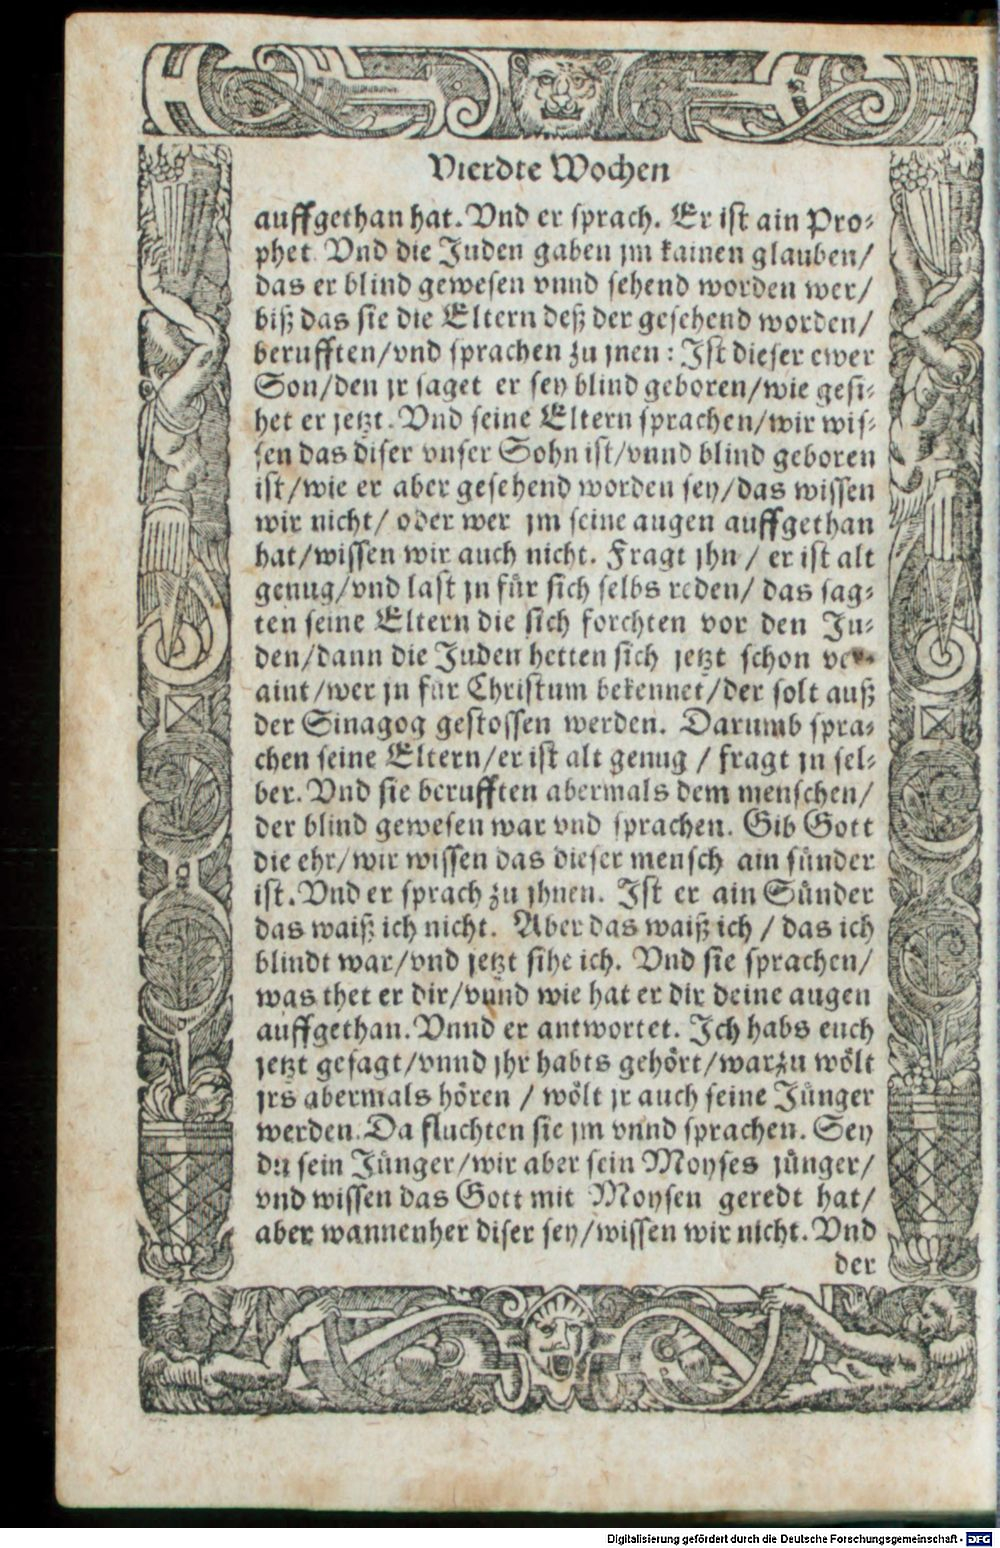 Vierdte Wochen
auffgethan hat. Vnd er sprach. Er ist ain Pro-
phet. Vnd die Juden gaben jm kainen glauben/
das er blind gewesen vnnd sehend worden wer/
biß das sie die Eltern deß der gesehend worden/
berufften/vnd sprachen zu jnen: Ist dieser ewer
Son/den jr saget er sey blind geboren/wie gesi-
het er jetzt. Vnd seine Eltern sprachen/wir wis-
sen das diser vnser Sohn ist/vnnd blind geboren
ist/wie er aber gesehend worden sey/das wissen
wir nicht/ oder wer jm seine augen auffgethan
hat/wissen wir auch nicht. Fragt jhn / er ist alt
genug/vnd last jn für sich selbs reden/ das sag-
ten seine Eltern die sich forchten vor den Ju-
den/dann die Juden hetten sich jetzt schon ver-
aint/wer jn für Christum bekennet/der solt auß
der Sinagog gestossen werden. Darumb spra-
chen seine Eltern/er ist alt genug / fragt jn sel-
ber. Vnd sie berufften abermals dem menschen/
der blind gewesen war vnd sprachen. Gib Gott
die ehr/wir wissen das dieser mensch ain sünder
ist. Vnd er sprach zu jhnen. Ist er ain Sünder
das waiß ich nicht. Aber das waiß ich / das ich
blindt war/vnd jetzt sihe ich. Vnd sie sprachen/
was thet er dir/vnnd wie hat er dir deine augen
auffgethan. Vnnd er antwortet. Ich habs euch
jetzt gesagt/vnnd jhr habts gehört/warzu wölt
jrs abermals hören / wölt jr auch seine Jünger
werden. Da fluchten sie jm vnnd sprachen. Sey
du sein Jünger/wir aber sein Moyses jünger/
vnd wissen das Gott mit Moysen geredt hat/
aber wannenher diser sey/wissen wir nicht. Vnd
der
Digitalisierung gefördert durch die Deutsche Forschungsgemeinschaft - DFG